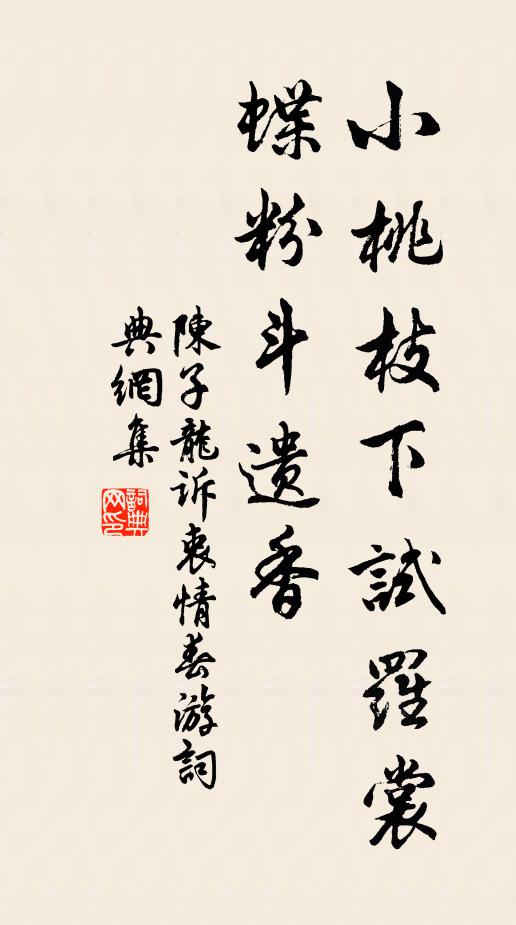 小桃枝下試羅裳
蝶粉斗遺香
陳子龍訴衷情春游詞
典網集
詞典網印